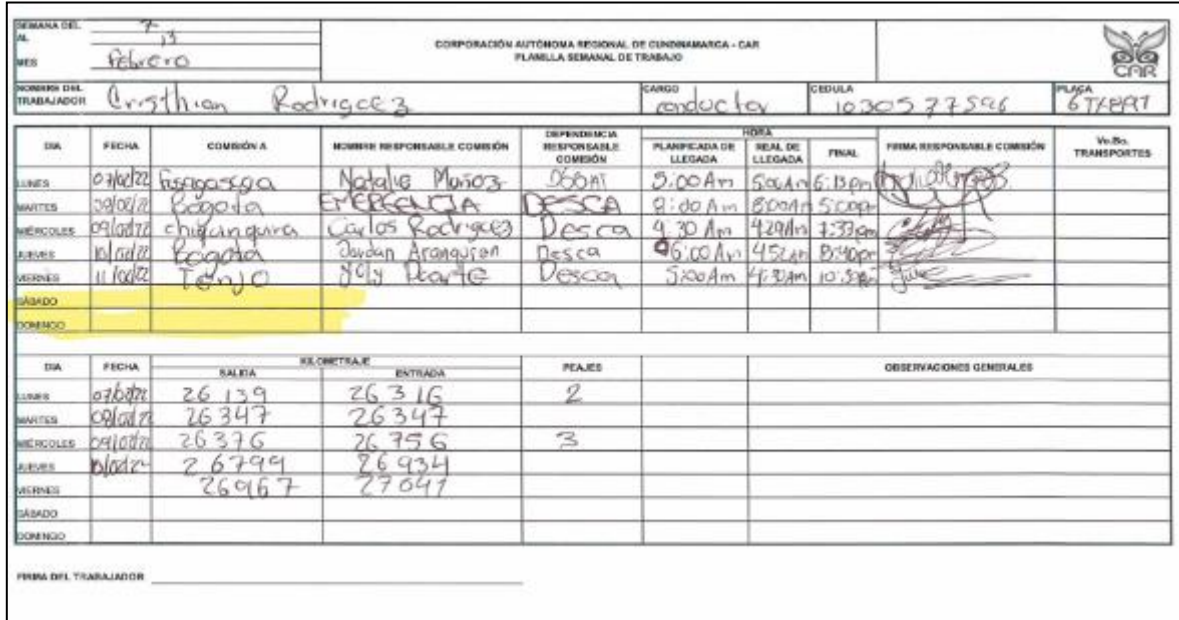 SEMANA DEL 7
AL 13
MES Febrero
CORPORACIÓN AUTÓNOMA REGIONAL DE CUNDINAMARCA - CAR
PLANILLA SEMANAL DE TRABAJO
CAR
NOMBRE DEL TRABAJADOR Cristhian Rodriguez CARGO conductor CEDULA PLACA
DIA FECHA COMISIÓN A NOMBRE RESPONSABLE COMISIÓN DEPENDENCIA RESPONSABLE COMISIÓN HORA PLANIFICADA DE LLEGADA REAL DE LLEGADA FINAL FIRMA RESPONSABLE COMISIÓN Vo.Bo. TRANSPORTES
LUNES 07/02/22 Natalie Muñoz 5:00 Am 5:00 Am 6:13 pm
MARTES Bogota EMERGENCIA DESCA 8:00 Am 8:00 Am 5:00 pm
MIÉRCOLES chiquinquira Carlos Rodriguez Desca 4:30 Am 4:29 Am 7:33 pm
JUEVES Bogota Desca 6:00 Am
VIERNES Tenjo Desca 5:00 Am
SÁBADO
DOMINGO
DIA FECHA KILOMETRAJE SALIDA ENTRADA PEAJES OBSERVACIONES GENERALES
LUNES 07/02/22 26 139 26 316 2
MARTES 26 347 26 347
MIÉRCOLES 26 376 26 756 3
JUEVES 26799 26 934
VIERNES 26967 27041
SÁBADO
DOMINGO
FIRMA DEL TRABAJADOR